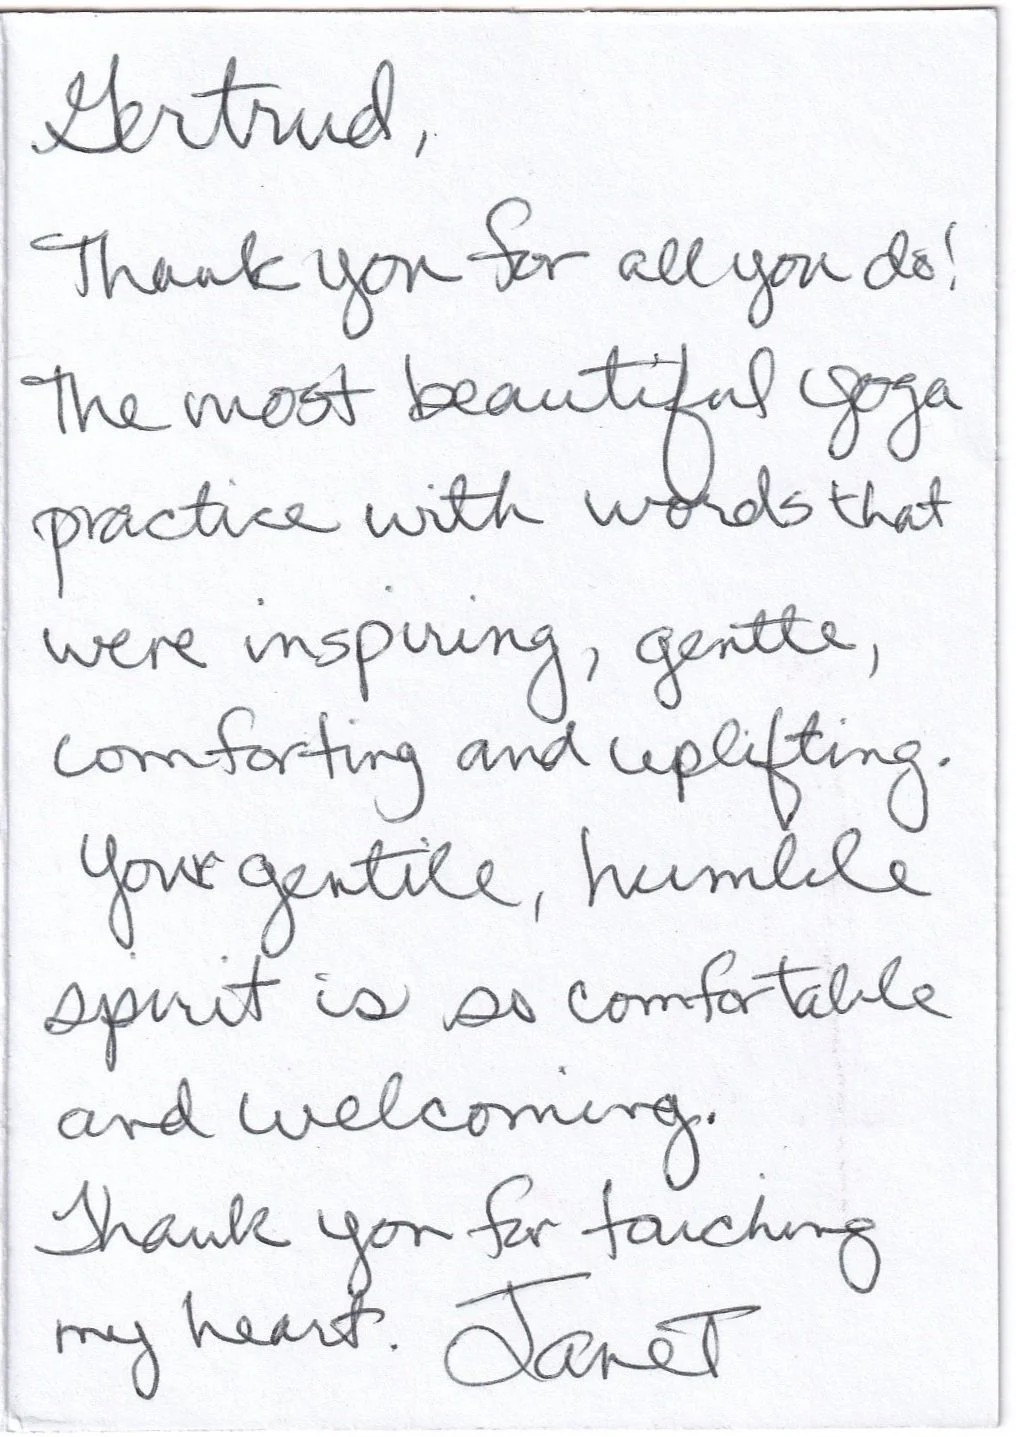 Gertrud,
Thank you for all you do!
The most beautiful yoga
practice with words that
were inspiring, gentle,
comforting and uplifting.
Your gentile, humble
spirit is so comfortable
and welcoming.
Thank you for touching
my heart. Janet